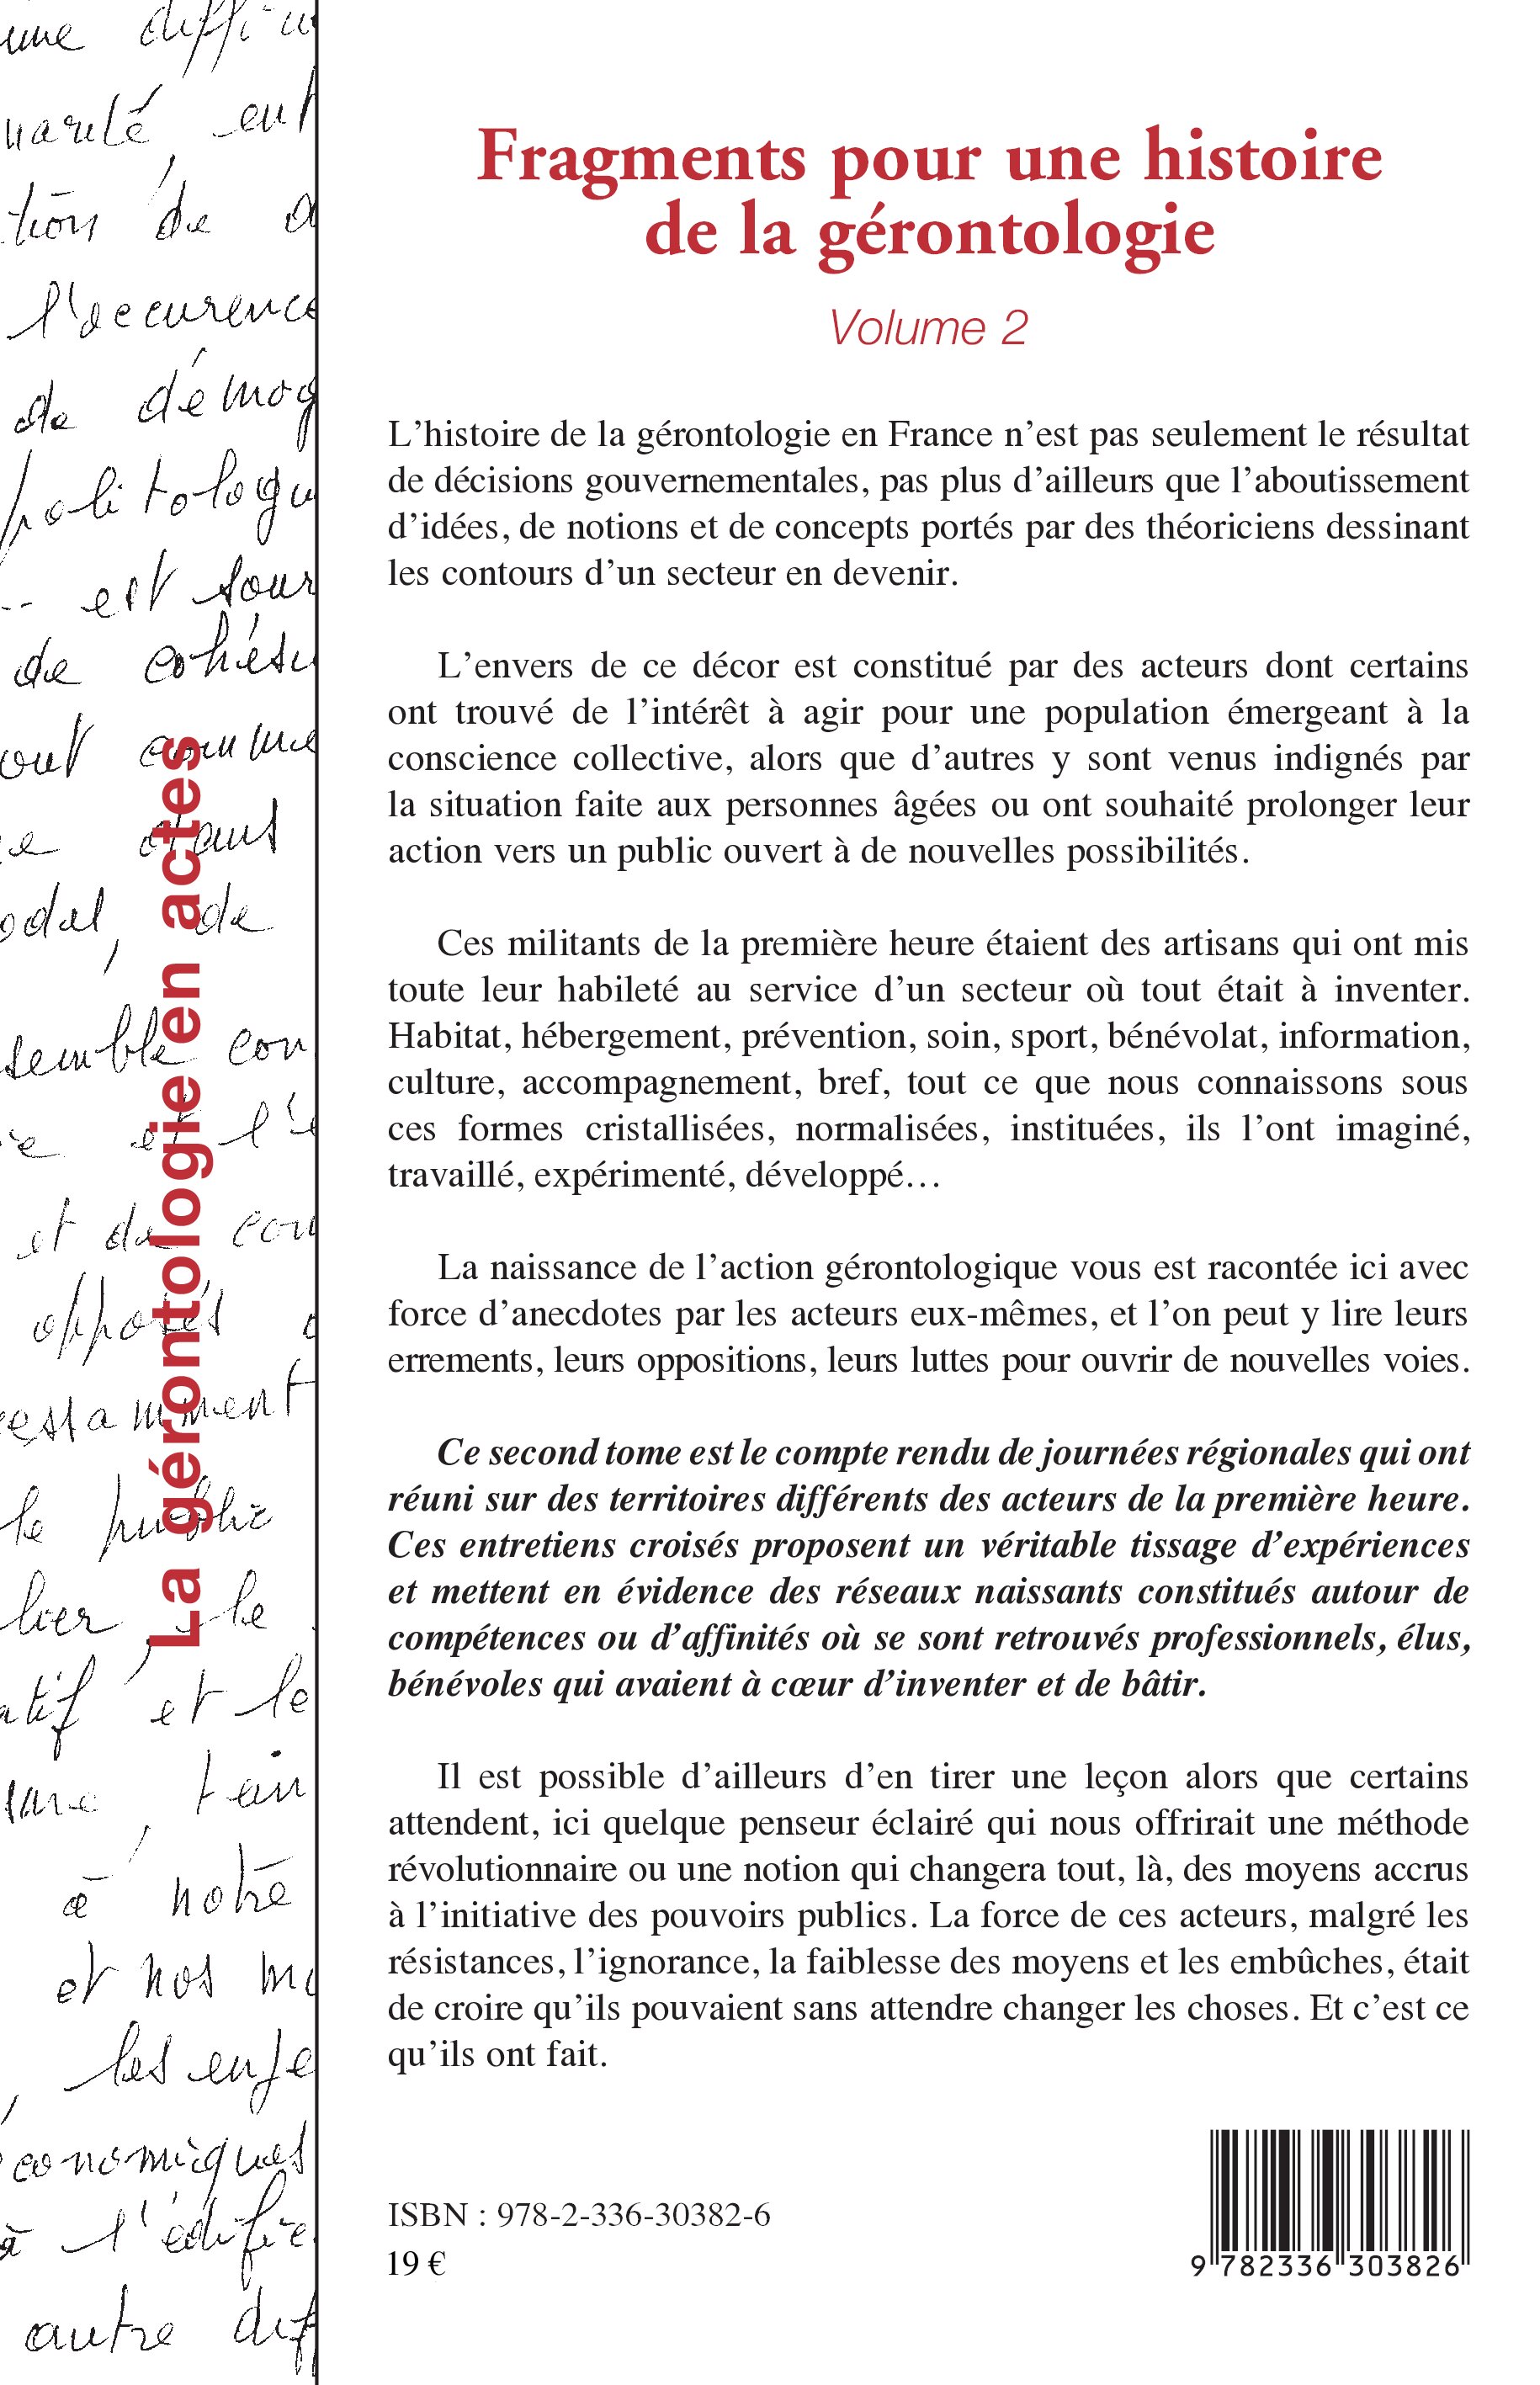 Fragments pour une histoire
de la gérontologie
Volume 2
L’histoire de la gérontologie en France n’est pas seulement le résultat
de décisions gouvernementales, pas plus d’ailleurs que l’aboutissement
d’idées, de notions et de concepts portés par des théoriciens dessinant
les contours d’un secteur en devenir.
L’envers de ce décor est constitué par des acteurs dont certains
ont trouvé de l’intérêt à agir pour une population émergeant à la
conscience collective, alors que d’autres y sont venus indignés par
la situation faite aux personnes âgées ou ont souhaité prolonger leur
action vers un public ouvert à de nouvelles possibilités.
Ces militants de la première heure étaient des artisans qui ont mis
toute leur habileté au service d’un secteur où tout était à inventer.
Habitat, hébergement, prévention, soin, sport, bénévolat, information,
culture, accompagnement, bref, tout ce que nous connaissons sous
ces formes cristallisées, normalisées, instituées, ils l’ont imaginé,
travaillé, expérimenté, développé…
La naissance de l’action gérontologique vous est racontée ici avec
force d’anecdotes par les acteurs eux-mêmes, et l’on peut y lire leurs
errements, leurs oppositions, leurs luttes pour ouvrir de nouvelles voies.
Ce second tome est le compte rendu de journées régionales qui ont
réuni sur des territoires différents des acteurs de la première heure.
Ces entretiens croisés proposent un véritable tissage d’expériences
et mettent en évidence des réseaux naissants constitués autour de
compétences ou d’affinités où se sont retrouvés professionnels, élus,
bénévoles qui avaient à cœur d’inventer et de bâtir.
Il est possible d’ailleurs d’en tirer une leçon alors que certains
attendent, ici quelque penseur éclairé qui nous offrirait une méthode
révolutionnaire ou une notion qui changera tout, là, des moyens accrus
à l’initiative des pouvoirs publics. La force de ces acteurs, malgré les
résistances, l’ignorance, la faiblesse des moyens et les embûches, était
de croire qu’ils pouvaient sans attendre changer les choses. Et c’est ce
qu’ils ont fait.
ISBN : 978-2-336-30382-6
19 €
9 782336 303826
La gérontologie en actes
une
de
l'occurence
de démog
politologu
est
de cohés
ont comme
dans
de
semble con
et l'
et de con
opposés
le public
le
et le
à notre
et nos
les enje
conomiques
à l'édifice
autre dif